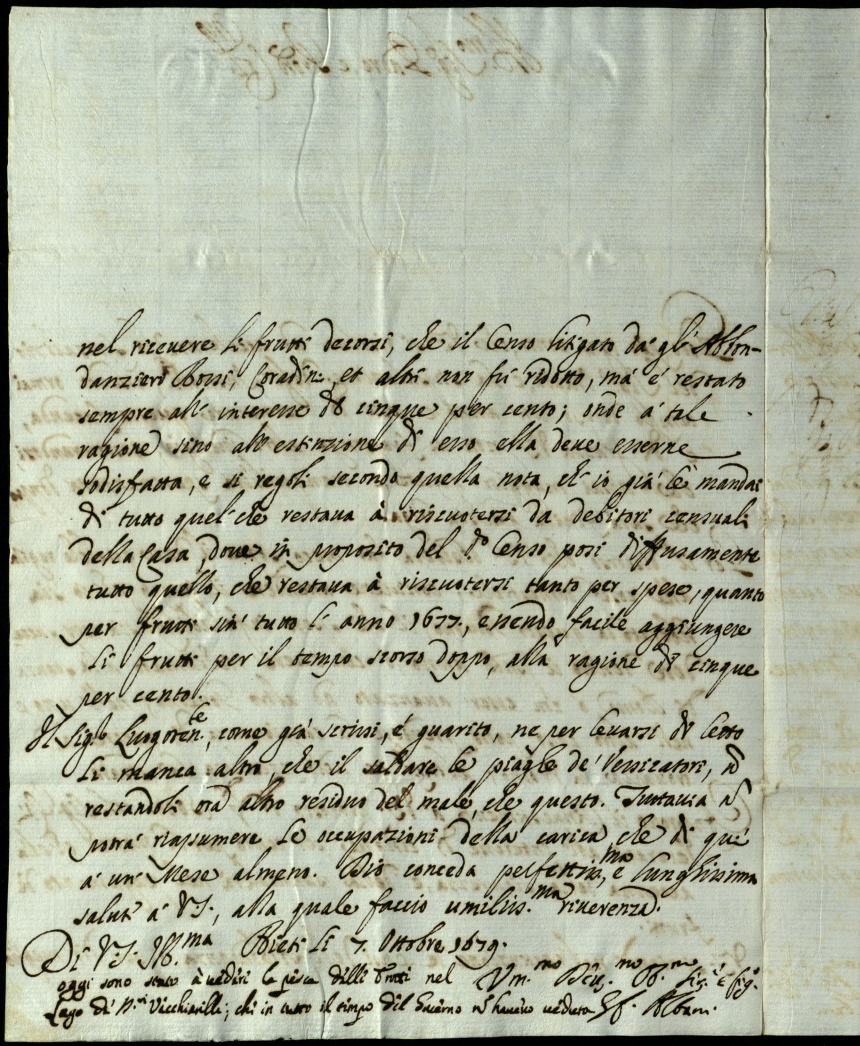 nel riceuere li frutti decorsi, che il Censo litigato da gli Abbon-
danzieri Bossi, Coradini, et altri non fù ridotto, mà è restato
sempre all' interesse di cinque per cento; onde à tale
ragione sino all' estinzione di esso ella deue esserne
sodisfatta, e si regoli secondo quella nota, ch' io già le mandai
di tutto quel che restaua à riscuotersi da debitori censuali
della Casa, doue in proposito del d.o Censo posi diffusamente
tutto quello, che restaua à riscuotersi tanto per spese, quanto
per frutti sin' tutto l' anno 1677., essendo facile aggiungere
li frutti per il tempo scorso doppo, alla ragione di cinque
per cento.
Il Sig.r Luogoten.te, come già scrissi, è guarito, ne per leuarsi di letto
li manca altro, che il saldare le piaghe de' Vessicatori, nõ
restandoli ora altro residuo del male, che questo. Tuttauia nõ
potrà riassumere le occupazioni della carica che di quì
à un' Mese almeno. Dio conceda perfettiss.ma, e lunghissima
salute à V.S., alla quale faccio umiliss.ma riuerenza.
Di V.S. Ill.ma Rieti li 7. Ottobre 1679.
oggi sono stato à uedere la pesca delli nel Um.mo Deu.mo Obl.mo fig.o e
Lago di Vicchiarelli; che in tutto il tempo del Gouerno nõ haueuo ueduta Albani